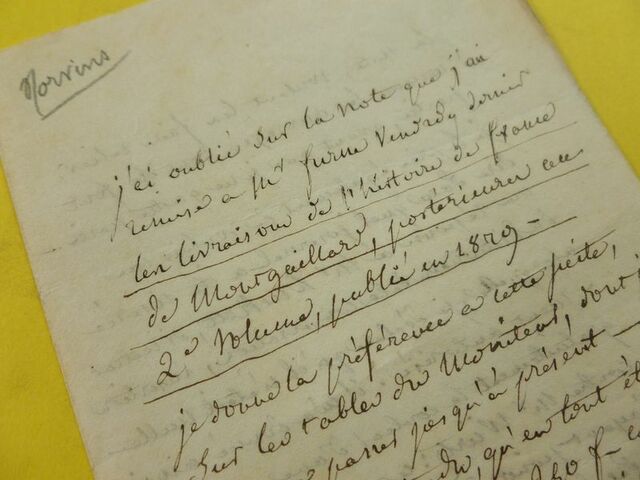 Norvins
j'ai oublié sur la note que j'ai
remise a Mr furne Vendredy dernier
les livraisons de l'histoire de france
de Montgaillard, postérieures au
2e Volume, publié en 1829 -
je donne la préférence a cette suite,
sur les tables du Moniteur, dont
passer jusqu'à présent —
du, qu'en tout
f-